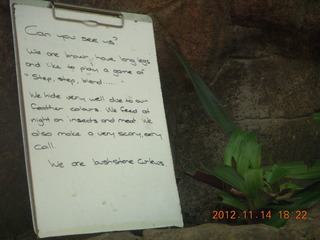 Can you see us?
We are brown, have long legs
and like to play a game of
"Step, step, blend....."
We hide very well due to our
feather colours. We feed at
night on insects and meat. We
also make a very scary, eery
call.
We are bushstone Curlews
2012.11.14 18:22